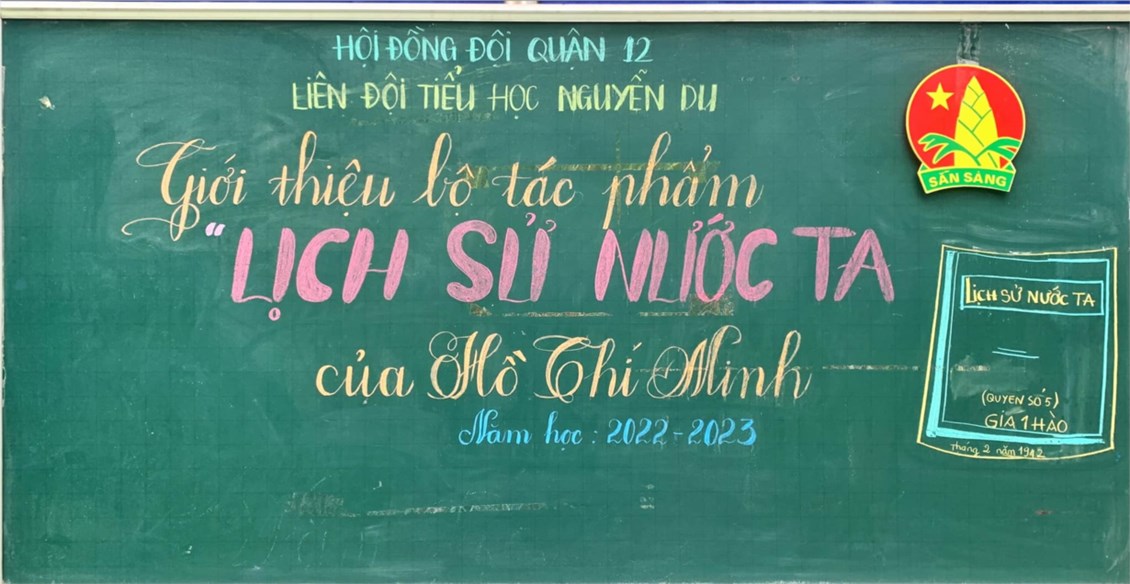 HỘI ĐỒNG ĐỘI QUẬN 12
LIÊN ĐỘI TIỂU HỌC NGUYỄN DU
Giới thiệu bộ tác phẩm
"LỊCH SỬ NƯỚC TA
của Hồ Chí Minh
Năm học : 2022-2023
SẴN SÀNG
LỊCH SỬ NƯỚC TA
(QUYEN SỐ 5)
GIA 1 HÀO
tháng 2 năm 1942